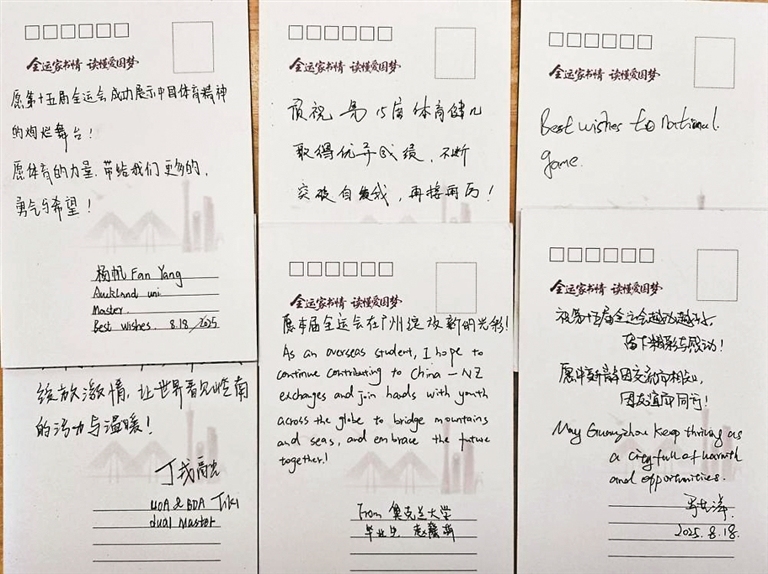 全运家书情 读懂爱国梦
愿第十五届全运会成功展示中国体育精神
的绚烂舞台！
愿体育的力量，带给我们更多的，
勇气与希望！
杨帆 Fan Yang
Auckland uni
Master.
Best wishes. 8.18/2025
全运家书情 读懂爱国梦
预祝 15届体育健儿
取得优异成绩，不断
突破自我，再接再厉！
全运家书情 读懂爱国梦
Best wishes to national
game.
绽放激情，让世界看见岭南
的活力与温暖！
UOA & BDA Tiki
dual Master
全运家书情 读懂爱国梦
愿本届全运会在广州绽放新的光彩！
As an overseas student, I hope to
continue contributing to China-NZ
exchanges and join hands with youth
across the globe to bridge mountains
and seas, and embrace the future
together!
From 奥克兰大学
毕业生
全运家书情 读懂爱国梦
祝第十五届全运会越办越好，
留下精彩与感动！
愿中新 因交流而相知，
因友谊而同行！
May Guangzhou keep thriving as
a city full of warmth
and opportunities.
2025.8.18.